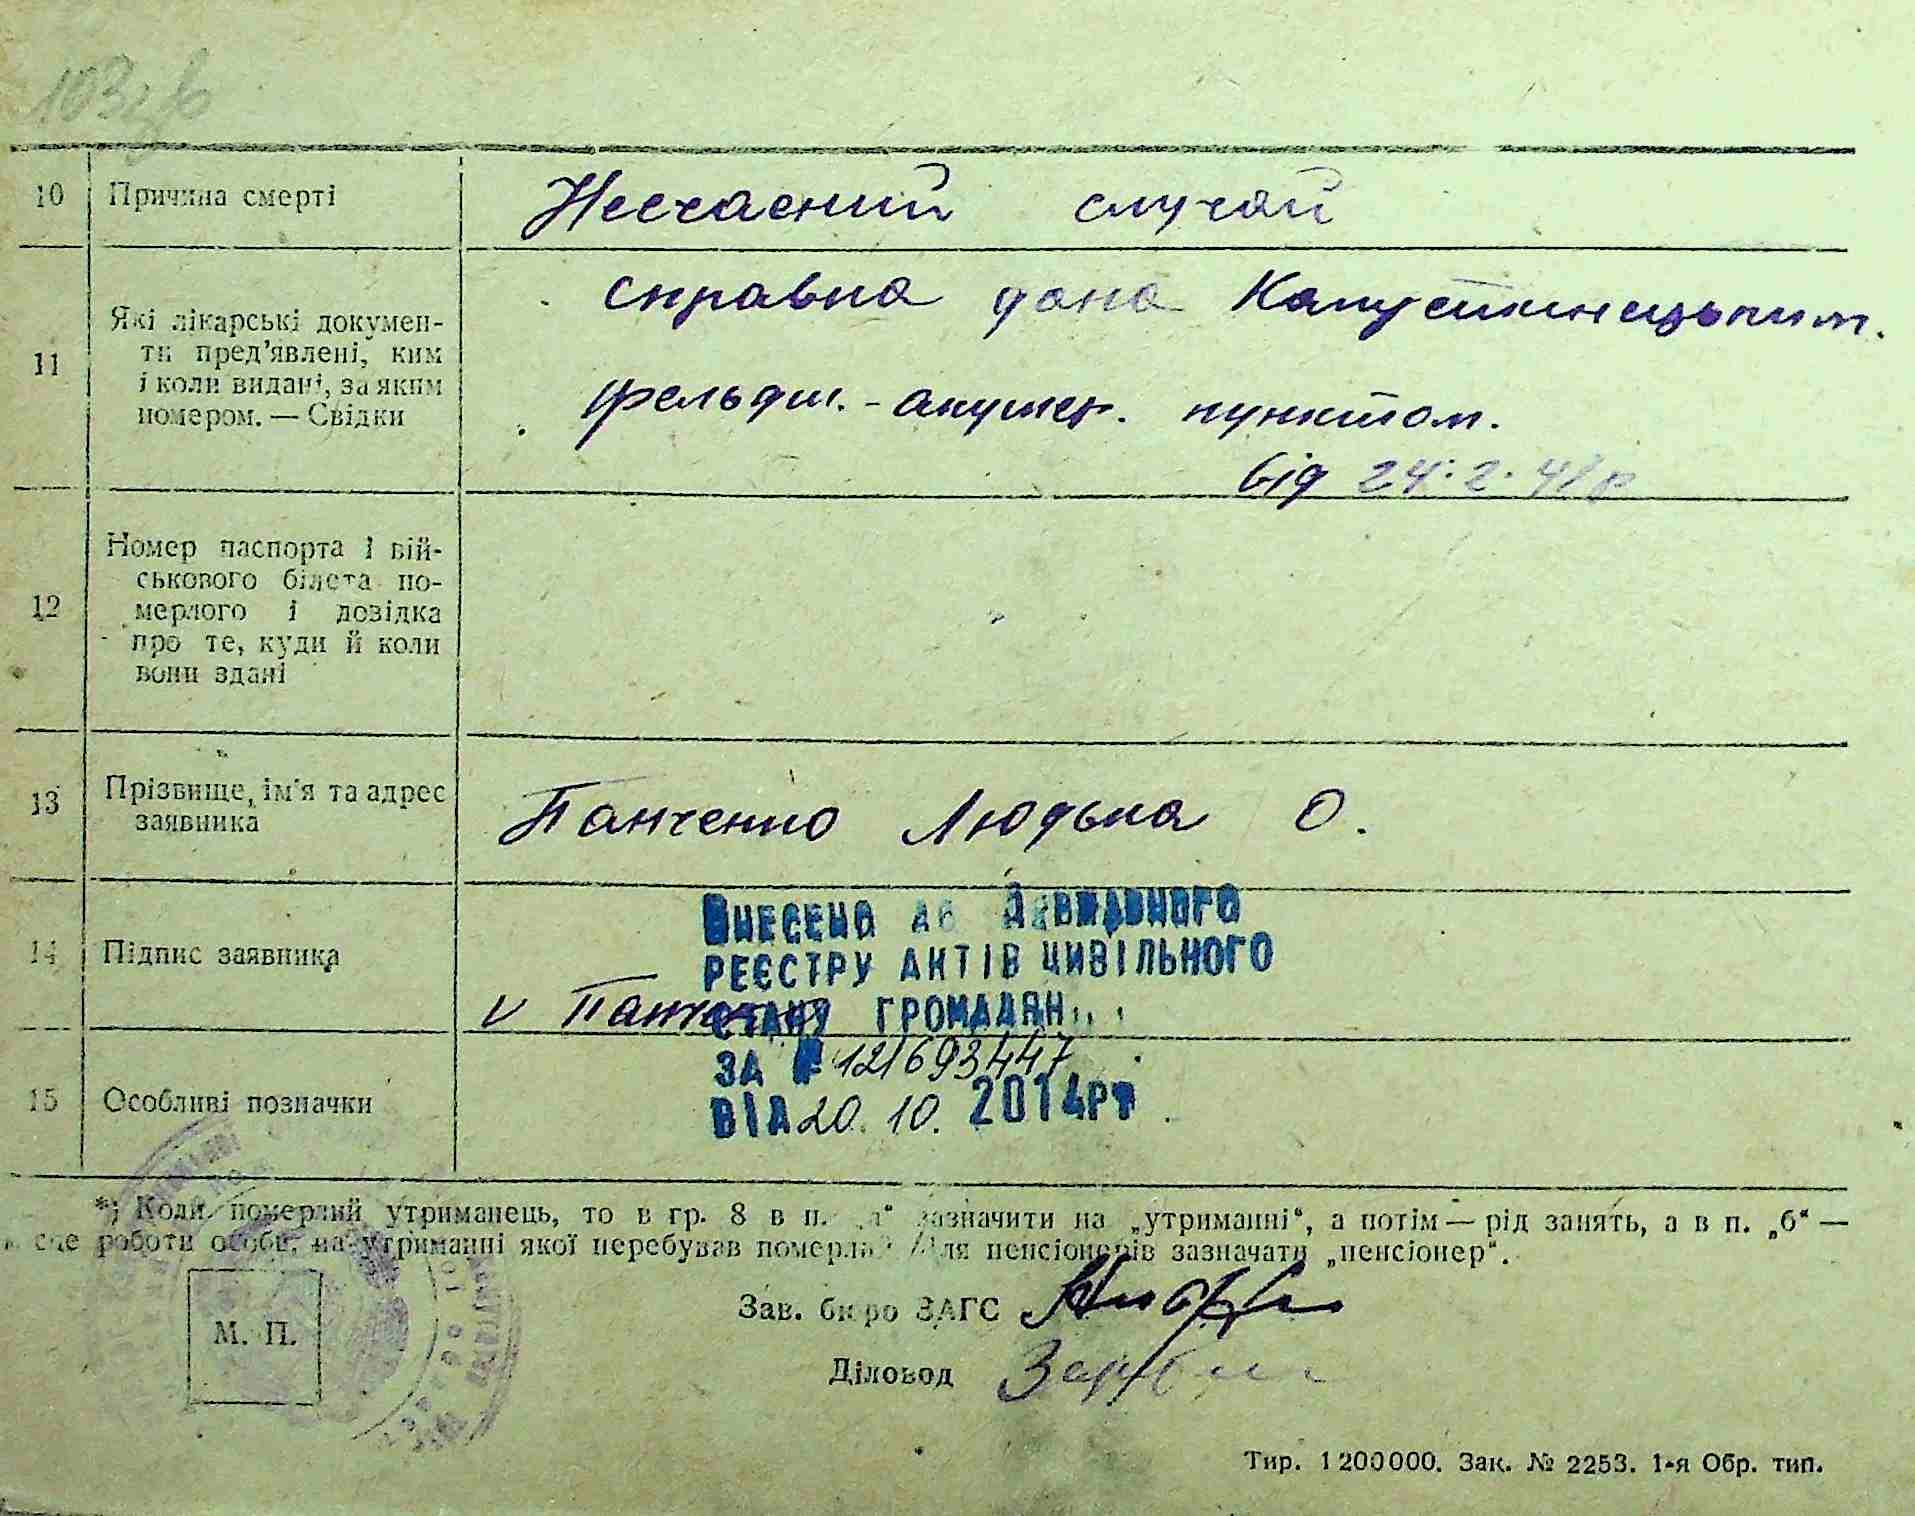 10 Причина смерті Несчасний случай
11 Які лікарські докумен-
ти пред'явлені, ким
і коли видані, за яким
номером. — Свідки
справка дана Капустинецьким.
фельдш.-акушер. пунктом.
від 24.2.48р
12 Номер паспорта і вій-
ськового білета по-
мерлого і довідка
про те, куди й коли
вони здані
13 Прізвище, ім'я та адрес
заявника
Панченко Людька О.
14 Підпис заявника
V Панченко
ВНЕСЕНО ДО ДЕРЖАВНОГО
РЕЄСТРУ АКТІВ ЦИВІЛЬНОГО
СТАНУ ГРОМАДЯН
ЗА № 121693447
ВІД 20. 10. 2014р
15 Особливі позначки
*) Коли померлий утриманець, то в гр. 8 в п. „а“ зазначити на „утриманні“, а потім — рід занять, а в п. „б“ —
місце роботи особи, на утриманні якої перебував померлий. Для пенсіонерів зазначати „пенсіонер“.
Зав. бюро ЗАГС
М. П.
Діловод
Тир. 1200000. Зак. № 2253. 1-я Обр. тип.